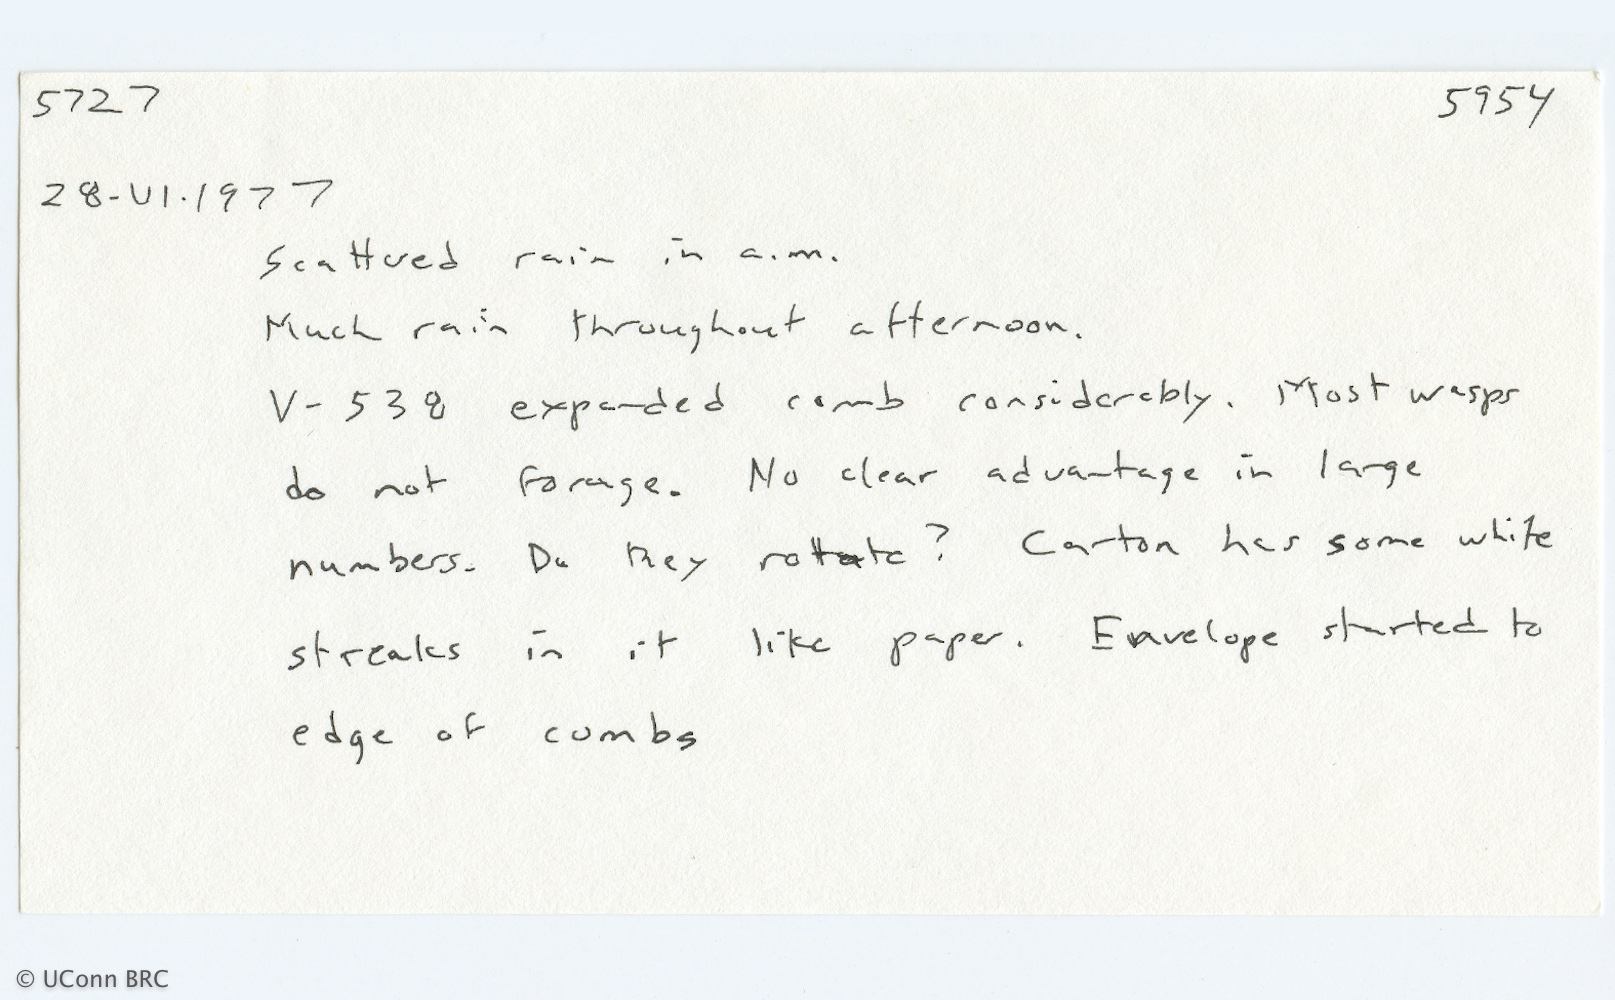 5727 5954
28-VI.1977
Scattered rain in a.m.
Much rain throughout afternoon.
V-538 expanded comb considerably. Most wasps
do not forage. No clear advantage in large
numbers. Do they rotate? Carton has some white
streaks in it like paper. Envelope started to
edge of combs
© UConn BRC